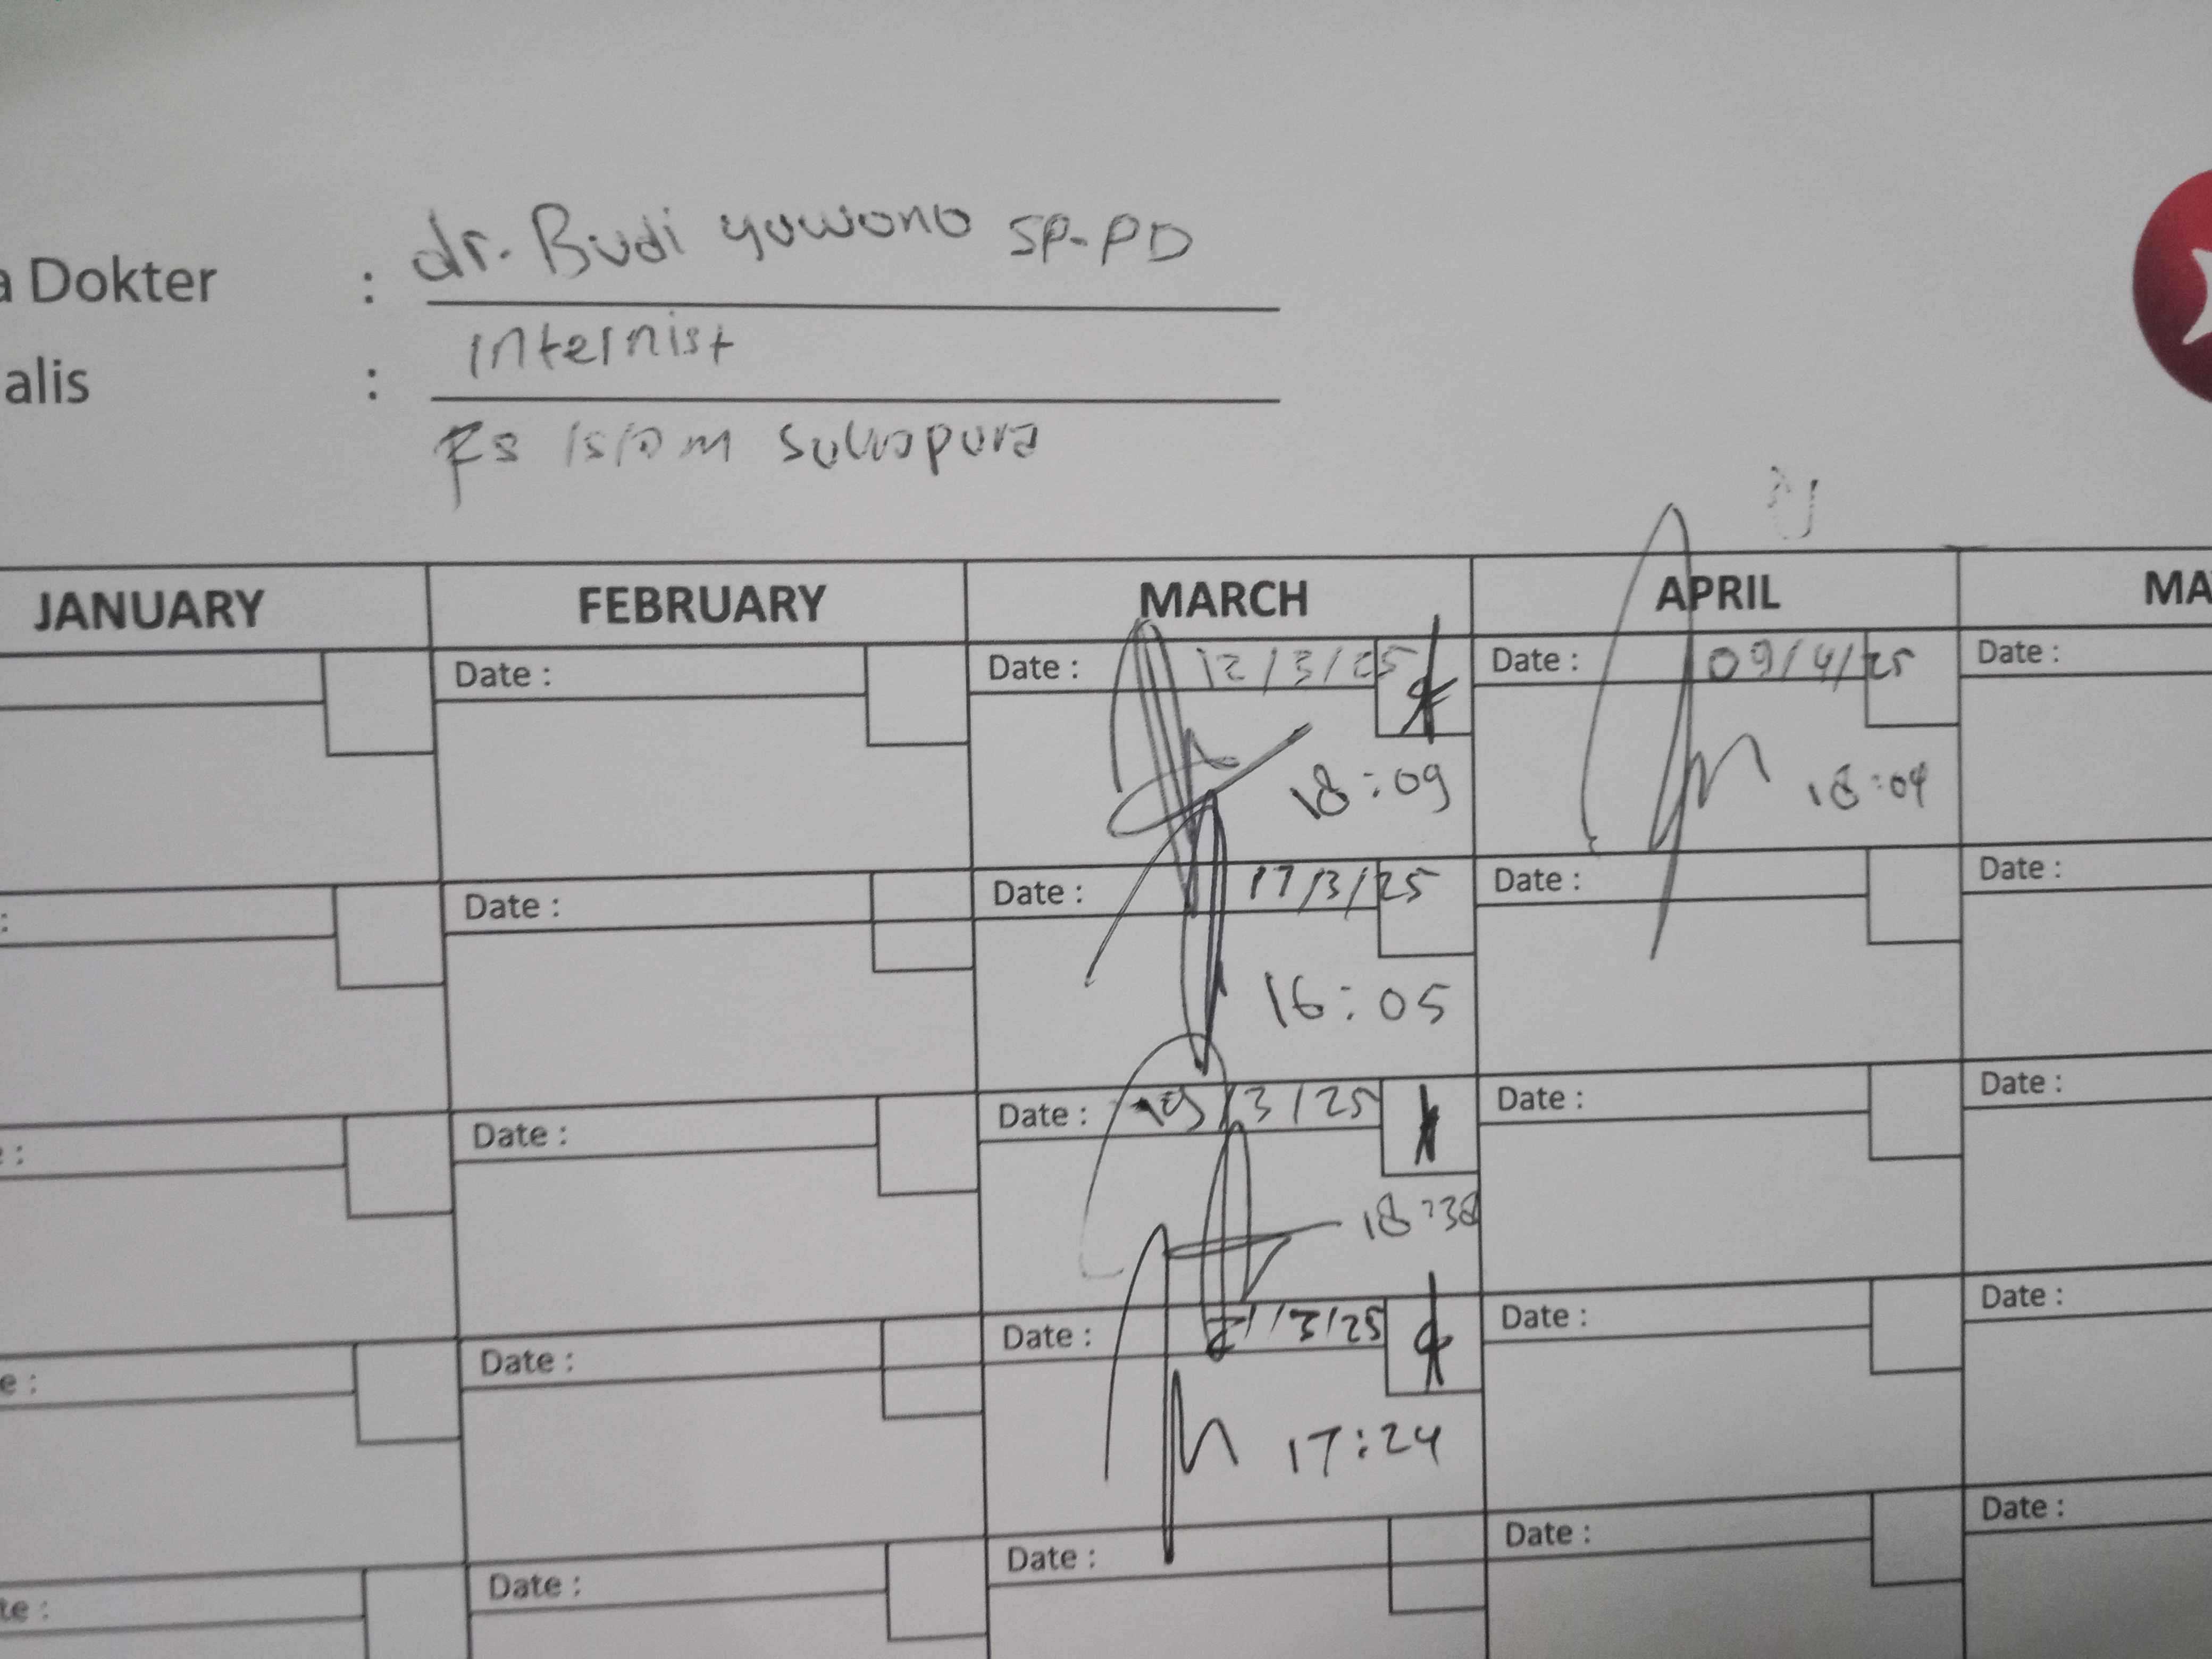 a Dokter : dr. Budi yuwono SP-PD
alis : Internist
RS Islam Sukapura
JANUARY FEBRUARY MARCH APRIL MA
Date : Date : 12/3/25 Date : 09/4/25 Date :
18:09 18:04
: Date : Date : 17/3/25 Date : Date :
16:05
e : Date : Date : 19/3/25 Date : Date :
18:38
e : Date : Date : 21/3/25 Date : Date :
17:24
te : Date : Date : Date : Date :